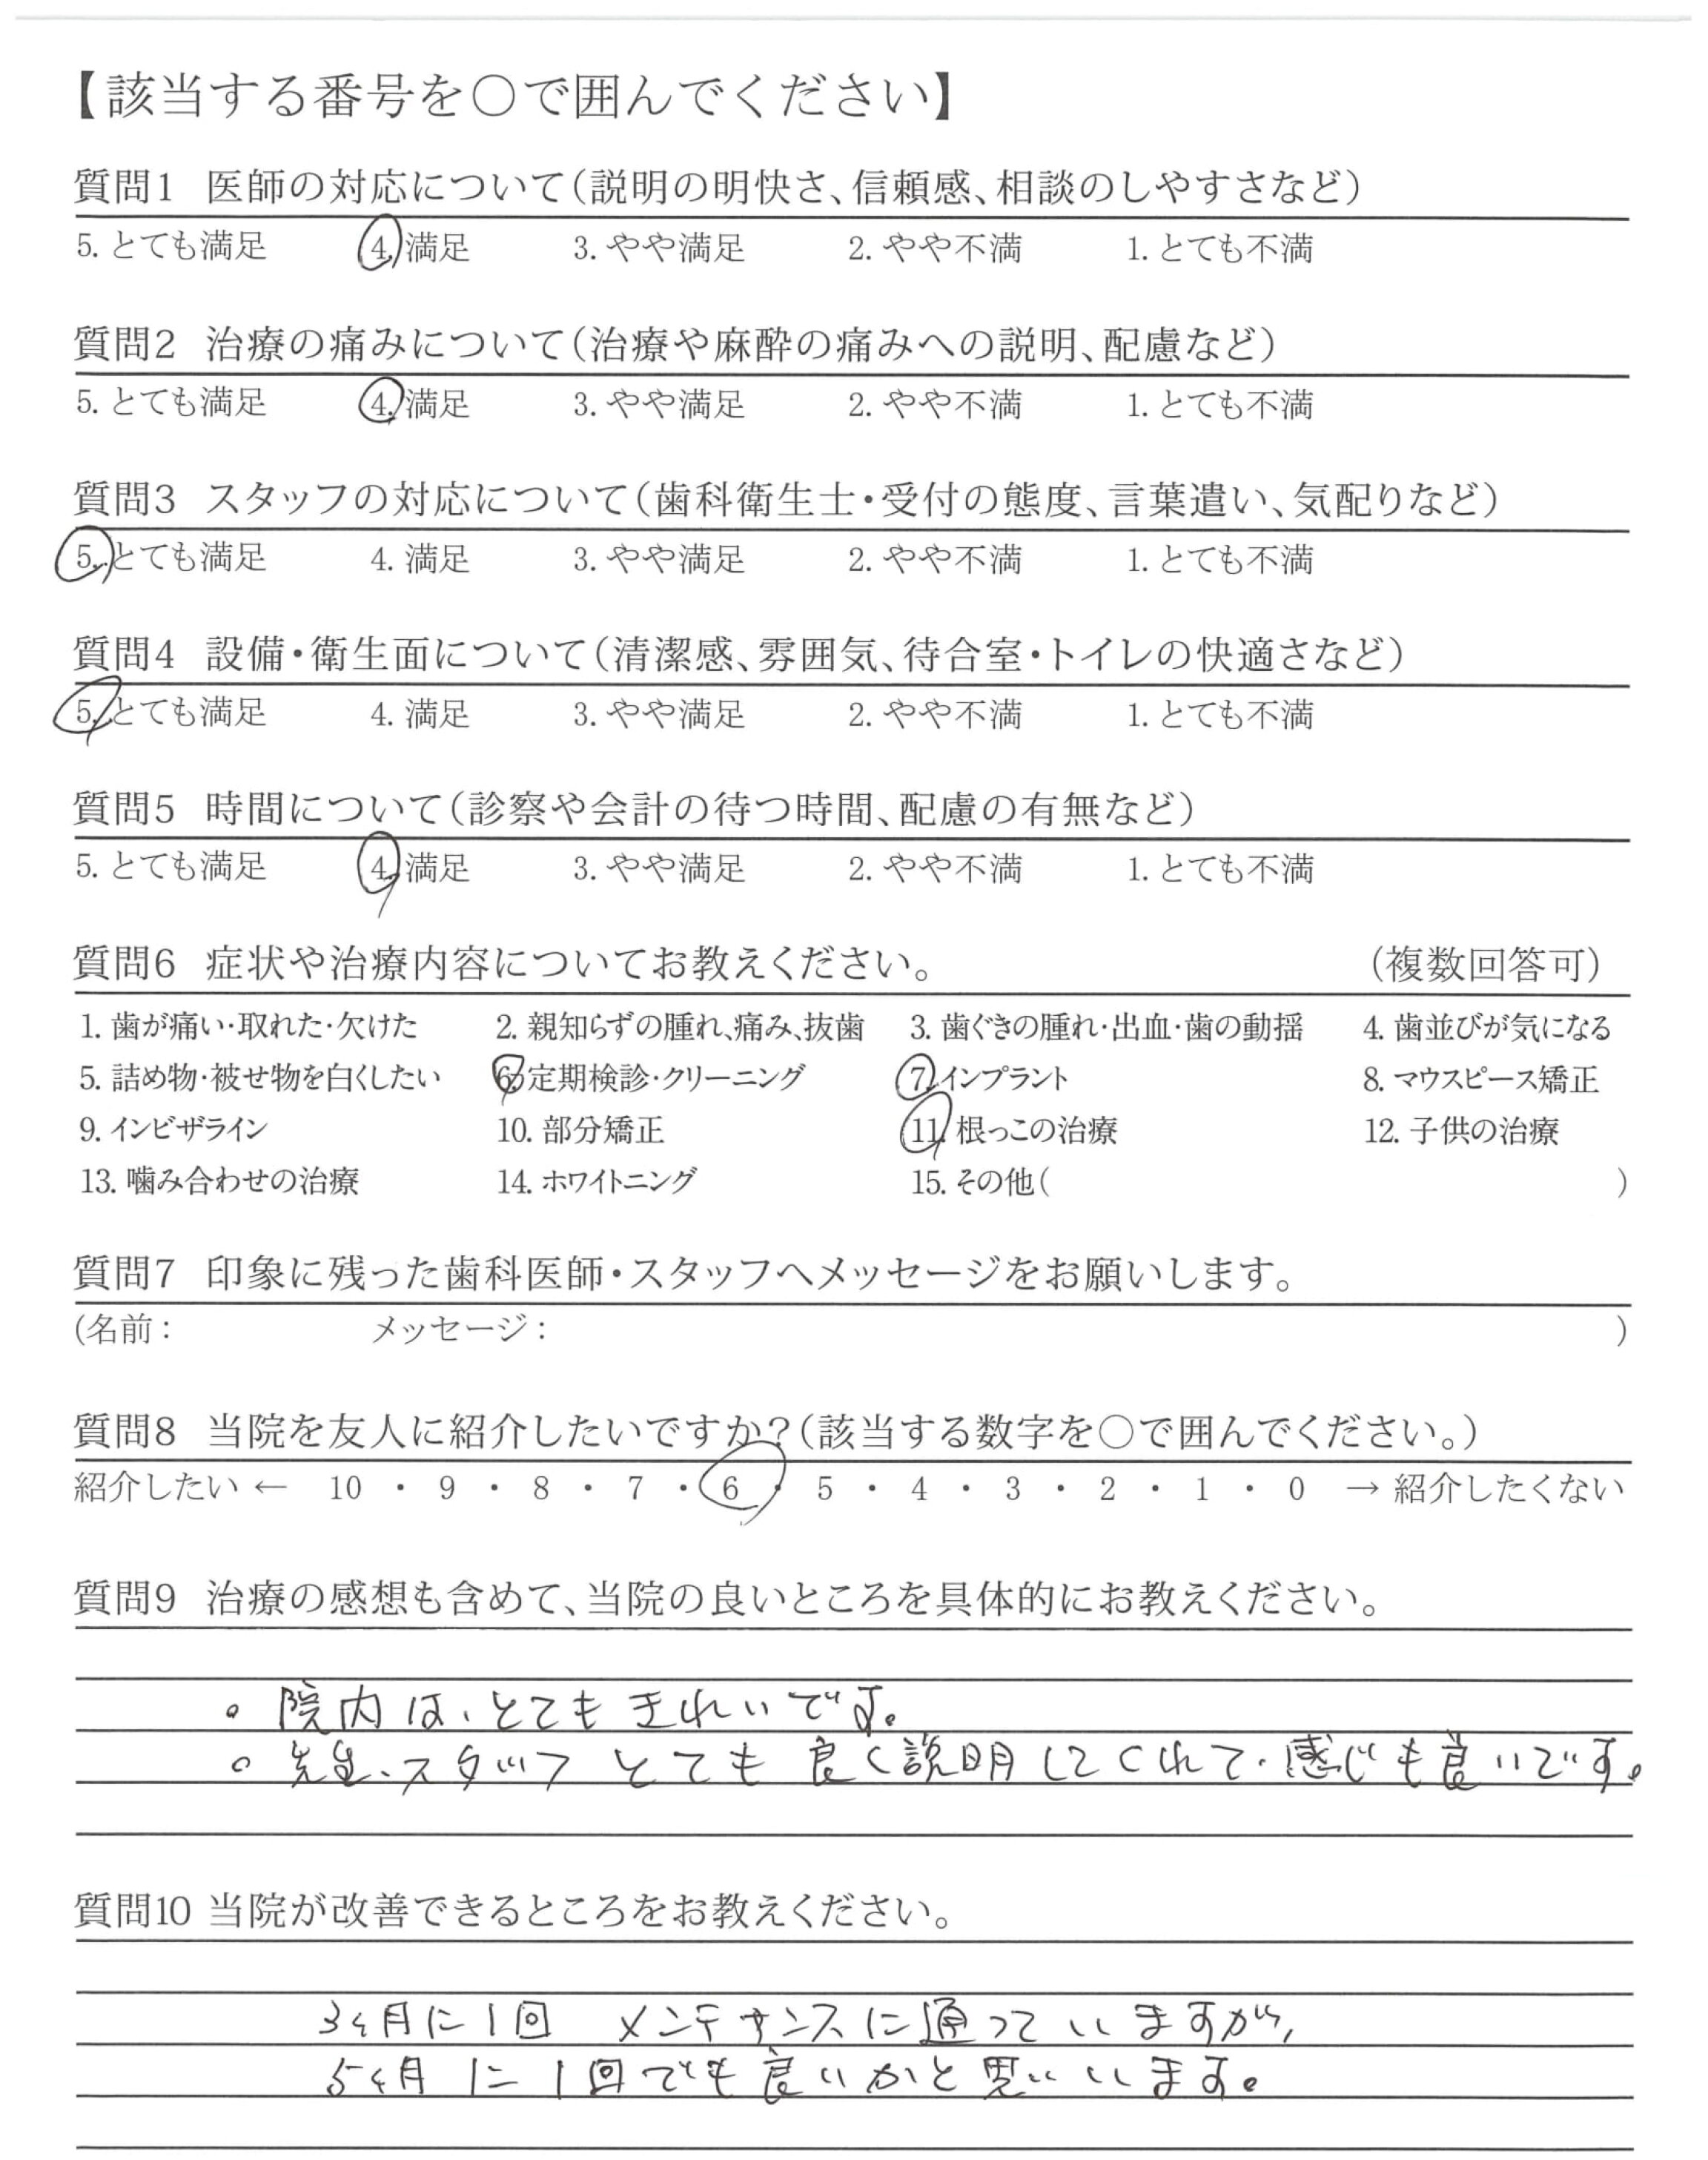 【該当する番号を○で囲んでください】
質問1 医師の対応について(説明の明快さ、信頼感、相談のしやすさなど)
5. とても満足 4. 満足 3. やや満足 2. やや不満 1. とても不満
質問2 治療の痛みについて(治療や麻酔の痛みへの説明、配慮など)
5. とても満足 4. 満足 3. やや満足 2. やや不満 1. とても不満
質問3 スタッフの対応について(歯科衛生士・受付の態度、言葉遣い、気配りなど)
5. とても満足 4. 満足 3. やや満足 2. やや不満 1. とても不満
質問4 設備・衛生面について(清潔感、雰囲気、待合室・トイレの快適さなど)
5. とても満足 4. 満足 3. やや満足 2. やや不満 1. とても不満
質問5 時間について(診察や会計の待つ時間、配慮の有無など)
5. とても満足 4. 満足 3. やや満足 2. やや不満 1. とても不満
質問6 症状や治療内容についてお教えください。 (複数回答可)
1. 歯が痛い・取れた・欠けた 2. 親知らずの腫れ、痛み、抜歯 3. 歯ぐきの腫れ・出血・歯の動揺 4. 歯並びが気になる
5. 詰め物・被せ物を白くしたい 6. 定期検診・クリーニング 7. インプラント 8. マウスピース矯正
9. インビザライン 10. 部分矯正 11. 根っこの治療 12. 子供の治療
13. 噛み合わせの治療 14. ホワイトニング 15. その他( )
質問7 印象に残った歯科医師・スタッフへメッセージをお願いします。
(名前: メッセージ: )
質問8 当院を友人に紹介したいですか?(該当する数字を○で囲んでください。)
紹介したい ← 10 ・ 9 ・ 8 ・ 7 ・ 6 ・ 5 ・ 4 ・ 3 ・ 2 ・ 1 ・ 0 → 紹介したくない
質問9 治療の感想も含めて、当院の良いところを具体的にお教えください。
。院内は、とてもきれいです。
。先生、スタッフ とても 良く説明してくれて、感じも良いです。
質問10 当院が改善できるところをお教えください。
3ヶ月に1回 メンテナンスに通っていますが、
5ヶ月に1回でも良いかと思います。